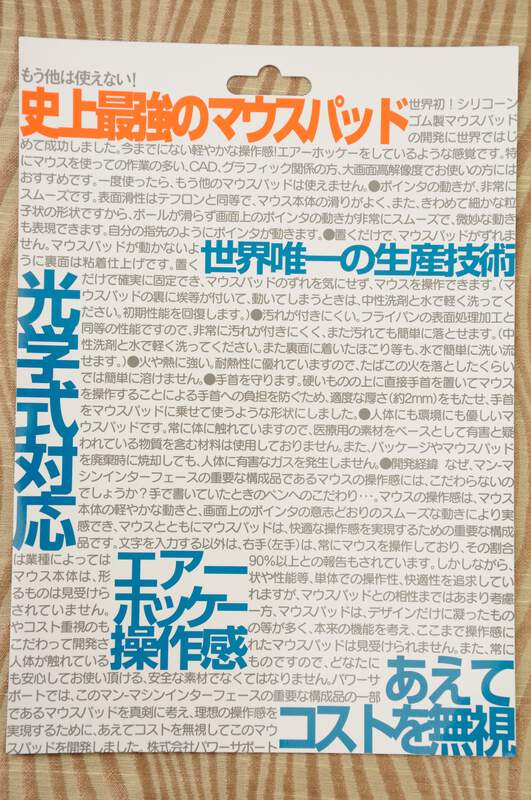 もう他は使えない!
史上最強のマウスパッド
世界初!シリコーン
ゴム製マウスパッド
の開発に世界ではじ
めて成功しました。今までにない軽やかな操作感!エアーホッケーをしているような感覚です。特
にマウスを使っての作業の多い、CAD、グラフィック関係の方、大画面高解像度でお使いの方には
おすすめです。一度使ったら、もう他のマウスパッドは使えません。●ポインタの動きが、非常に
スムーズです。表面滑性はテフロンと同等で、マウス本体の滑りがよく、また、きわめて細かな粒
子状の形状ですから、ボールが滑らず画面上のポインタの動きが非常にスムーズで、微妙な動き
も表現できます。自分の指先のようにポインタが動きます。●置くだけで、マウスパッドがずれま
せん。マウスパッドが動かないよ
うに裏面は粘着仕上げです。置く
世界唯一の生産技術
だけで確実に固定でき、マウスパッドのずれを気にせず、マウスを操作できます。(マ
ウスパッドの裏に埃等が付いて、動いてしまうときは、中性洗剤と水で軽く洗ってく
ださい。初期性能を回復します。)●汚れが付きにくい。フライパンの表面処理加工と
同等の性能ですので、非常に汚れが付きにくく、また汚れても簡単に落とせます。(中
性洗剤と水で軽く洗ってください。また裏面に着いたほこり等も、水で簡単に洗い流
せます。)●火や熱に強い。耐熱性に優れていますので、たばこの火を落としたくらい
では簡単に溶けません。●手首を守ります。硬いものの上に直接手首を置いてマウス
を操作することによる手首への負担を防ぐため、適度な厚さ(約2mm)をもたせ、手首
をマウスパッドに乗せて使うような形状にしました。●人体にも環境にも優しいマウ
スパッドです。常に体に触れていますので、医療用の素材をベースとして有害と疑
われている物質を含む材料は使用しておりません。また、パッケージやマウスパッド
を廃棄時に焼却しても、人体に有害なガスを発生しません。●開発経緯 なぜ、マン・マ
シンインターフェースの重要な構成品であるマウスの操作感には、こだわらないの
でしょうか?手で書いていたときのペンへのこだわり・・・。マウスの操作感は、マウス
本体の軽やかな動きと、画面上のポインタの意志どおりのスムーズな動きにより実
感でき、マウスとともにマウスパッドは、快適な操作感を実現するための重要な構成
品です。文字を入力する以外は、右手(左手)は、常にマウスを操作しており、その割合
光学式対応
は業種によっては
マウス本体は、形
るものは見受けら
されていません。
やコスト重視のも
こだわって開発さ
人体が触れている
エアー
ホッケー
操作感
90%以上との報告もされています。しかしながら、
状や性能等、単体での操作性、快適性を追求してい
れますが、マウスパッドとの相性まではあまり考慮
一方、マウスパッドは、デザインだけに凝ったもの
の等が多く、本来の機能を考え、ここまで操作感に
れたマウスパッドは見受けられません。また、常に
ものですので、どなたに
も安心してお使い頂ける、安全な素材でなくてはなりません。パワーサ
ポートでは、このマン・マシンインターフェースの重要な構成品の一部
であるマウスパッドを真剣に考え、理想の操作感を
実現するために、あえてコストを無視してこのマウ
スパッドを開発しました。株式会社パワーサポート
あえて
コストを無視